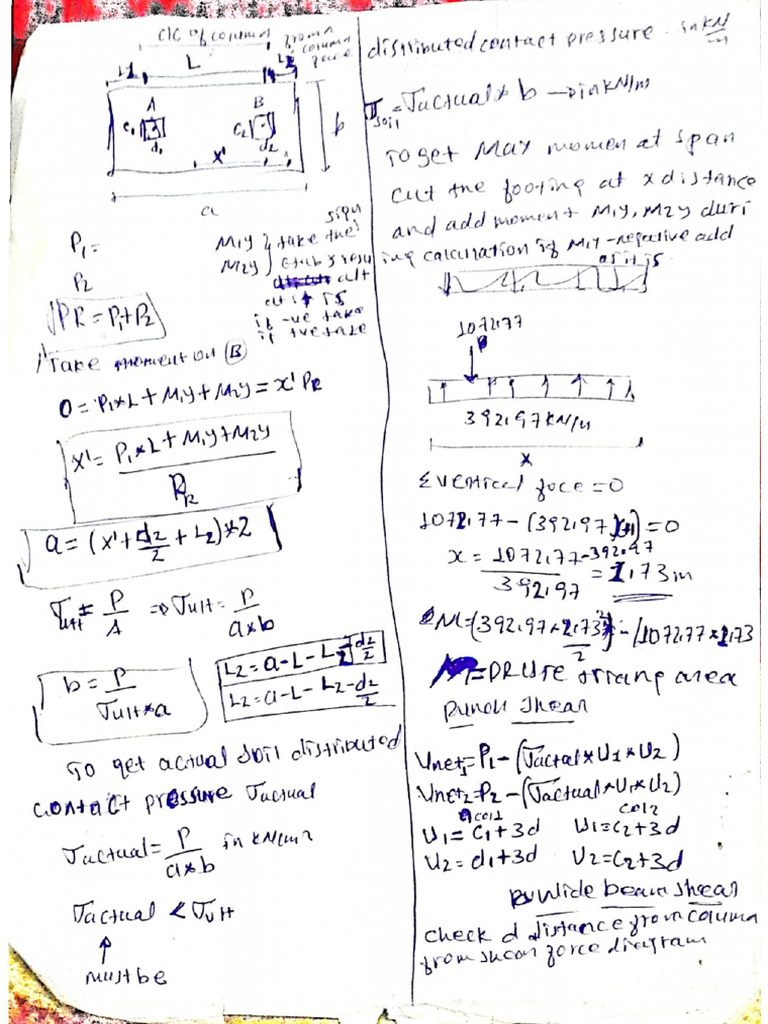 C/C of column
from a column face
L
L1
L2
A
B
C1
d1
C2
d2
X'
b
a
P1 =
P2
PR = P1+P2
M1y
M2y
take the sign
etabs result
as it is
if -ve take
if +ve take
Take moment on B
0 = P1*L + M1y + M2y = x' PR
X' = P1*L + M1y + M2y
PR
a = (X' + d2/2 + L2)*2
σult = P/A => σult = P/a*b
b = P/σult*a
L2 = a-L-L2 d2/2
L2 = a-L-L2-d2/2
To get actual soil distributed
contact pressure σactual
σactual = P/a*b in kN/m2
σactual < σult
must be
distributed contact pressure - in kN/m
σsoil = σactual * b → in kN/m
To get Max momen at span
cut the footing at x distance
and add moment M1y, M2y duri
ing calculation if M1y -negative add
as it is
1072.77
392.97 kN/m
x
Σ vertical foce = 0
1072.77 - (392.97)(x+1) = 0
x = 1072.77-392.97
392.97
= 1.73m
ΣM = (392.97*2.73²/2) - (1072.77*1.73
area
Punch shear
Vnet1 = P1 - (σactal*U1*U2)
Vnet2 = P2 - (σactual*U1*U2)
col1
col2
U1 = C1+3d U1 = C2+3d
U2 = d1+3d U2 = C2+3d
wide beam shear
check d distance from column
from shear force diagram